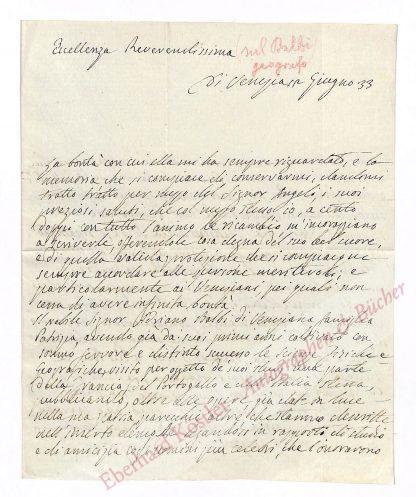 Eccellenza Reverendissima
sul Balbi
geografo
Di Venezia Giugno 33
La bontà con cui ella mi ha sempre riguardato, e la
memoria che si compiace di conservarmi, dandomi
tratto tratto per mezzo del Signor Angeli, i suoi
preziosi saluti, che col mezzo, a cento
doppi con tutto l'animo le ricambio m'incoraggiano
a scriverle offerendole cosa degna del suo bel cuore,
e di quella valida protezione che si compiacque
sempre accordare alle persone meritevoli; e
particolarmente ai Veneziani pei quali non
cessa di avere infinita bontà.
Il nobile Signor Adriano Balbi di Veneziana famiglia
Patrizia, avendo già da' suoi primi anni coltivato con
sommo fervore e distinto le scienze fisiche e
Geografiche, visitò per oggetto de' suoi studi gran parte
della Francia, del Portogallo e dell'Italia stessa,
pubblicando, oltre alle opere già date in luce
nella sua patria parecchie altre che
dell'
e di amicizia con uomini più celebri che l'onoravano
Eberhard Köstler Autographen & Bücher